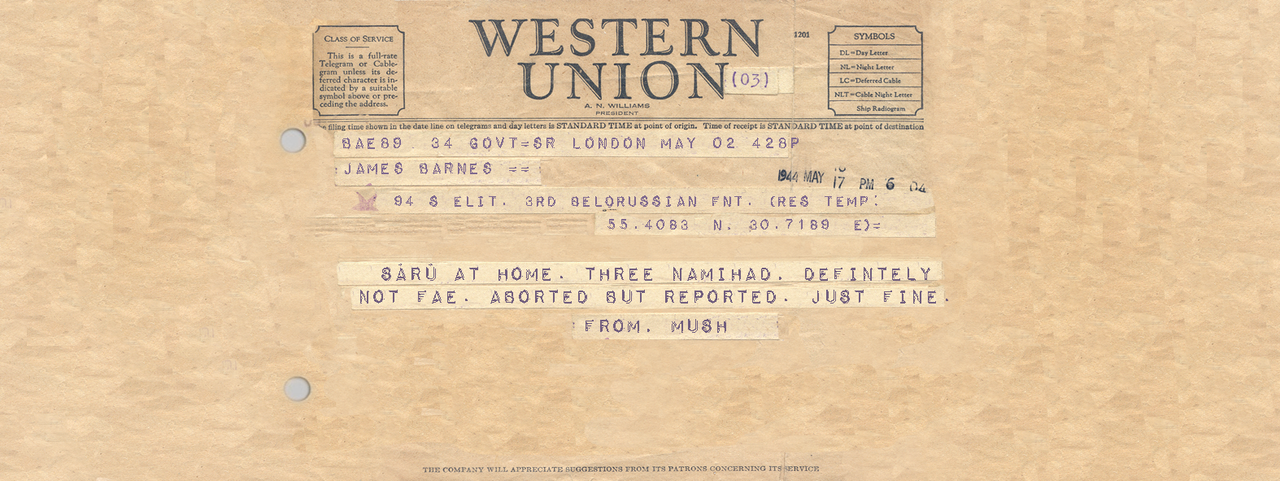 WESTERN
UNION (03)
1201
A. N. WILLIAMS
PRESIDENT
CLASS OF SERVICE
This is a full-rate
Telegram or Cable-
gram unless its de-
ferred character is in-
dicated by a suitable
symbol above or pre-
ceding the address.
SYMBOLS
DL=Day Letter
NL=Night Letter
LC=Deferred Cable
NLT=Cable Night Letter
Ship Radiogram
filing time shown in the date line on telegrams and day letters is STANDARD TIME at point of origin. Time of receipt is STANDARD TIME at point of destination
BAE89. 34 GOVT=SR LONDON MAY 02 428P
JAMES BARNES ==
1944 MAY 17 PM 6 04
94 S ELIT. 3RD BELORUSSIAN FNT. (RES TEMP:
55.4083 N. 30.7189 E)=
SÁRÚ AT HOME. THREE NAMIHAD. DEFINTELY
NOT FAE. ABORTED BUT REPORTED. JUST FINE.
FROM. MUSH
THE COMPANY WILL APPRECIATE SUGGESTIONS FROM ITS PATRONS CONCERNING ITS SERVICE